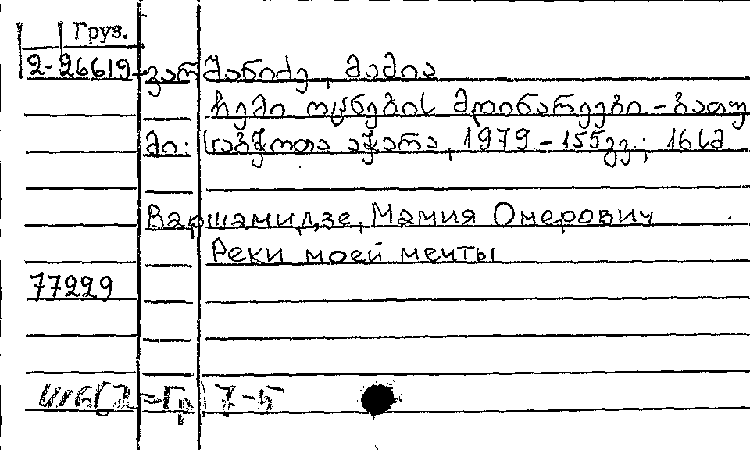 Груз.
2-26619
ვარშანიძე, მამია
ჩემი ოცნების მდინარეები - ბათუ
მი: საბჭოთა აჭარა, 1979 - 155გვ; 16სმ
Варшамидзе, Мамия Омерович
Реки моей мечты
77229
7-5